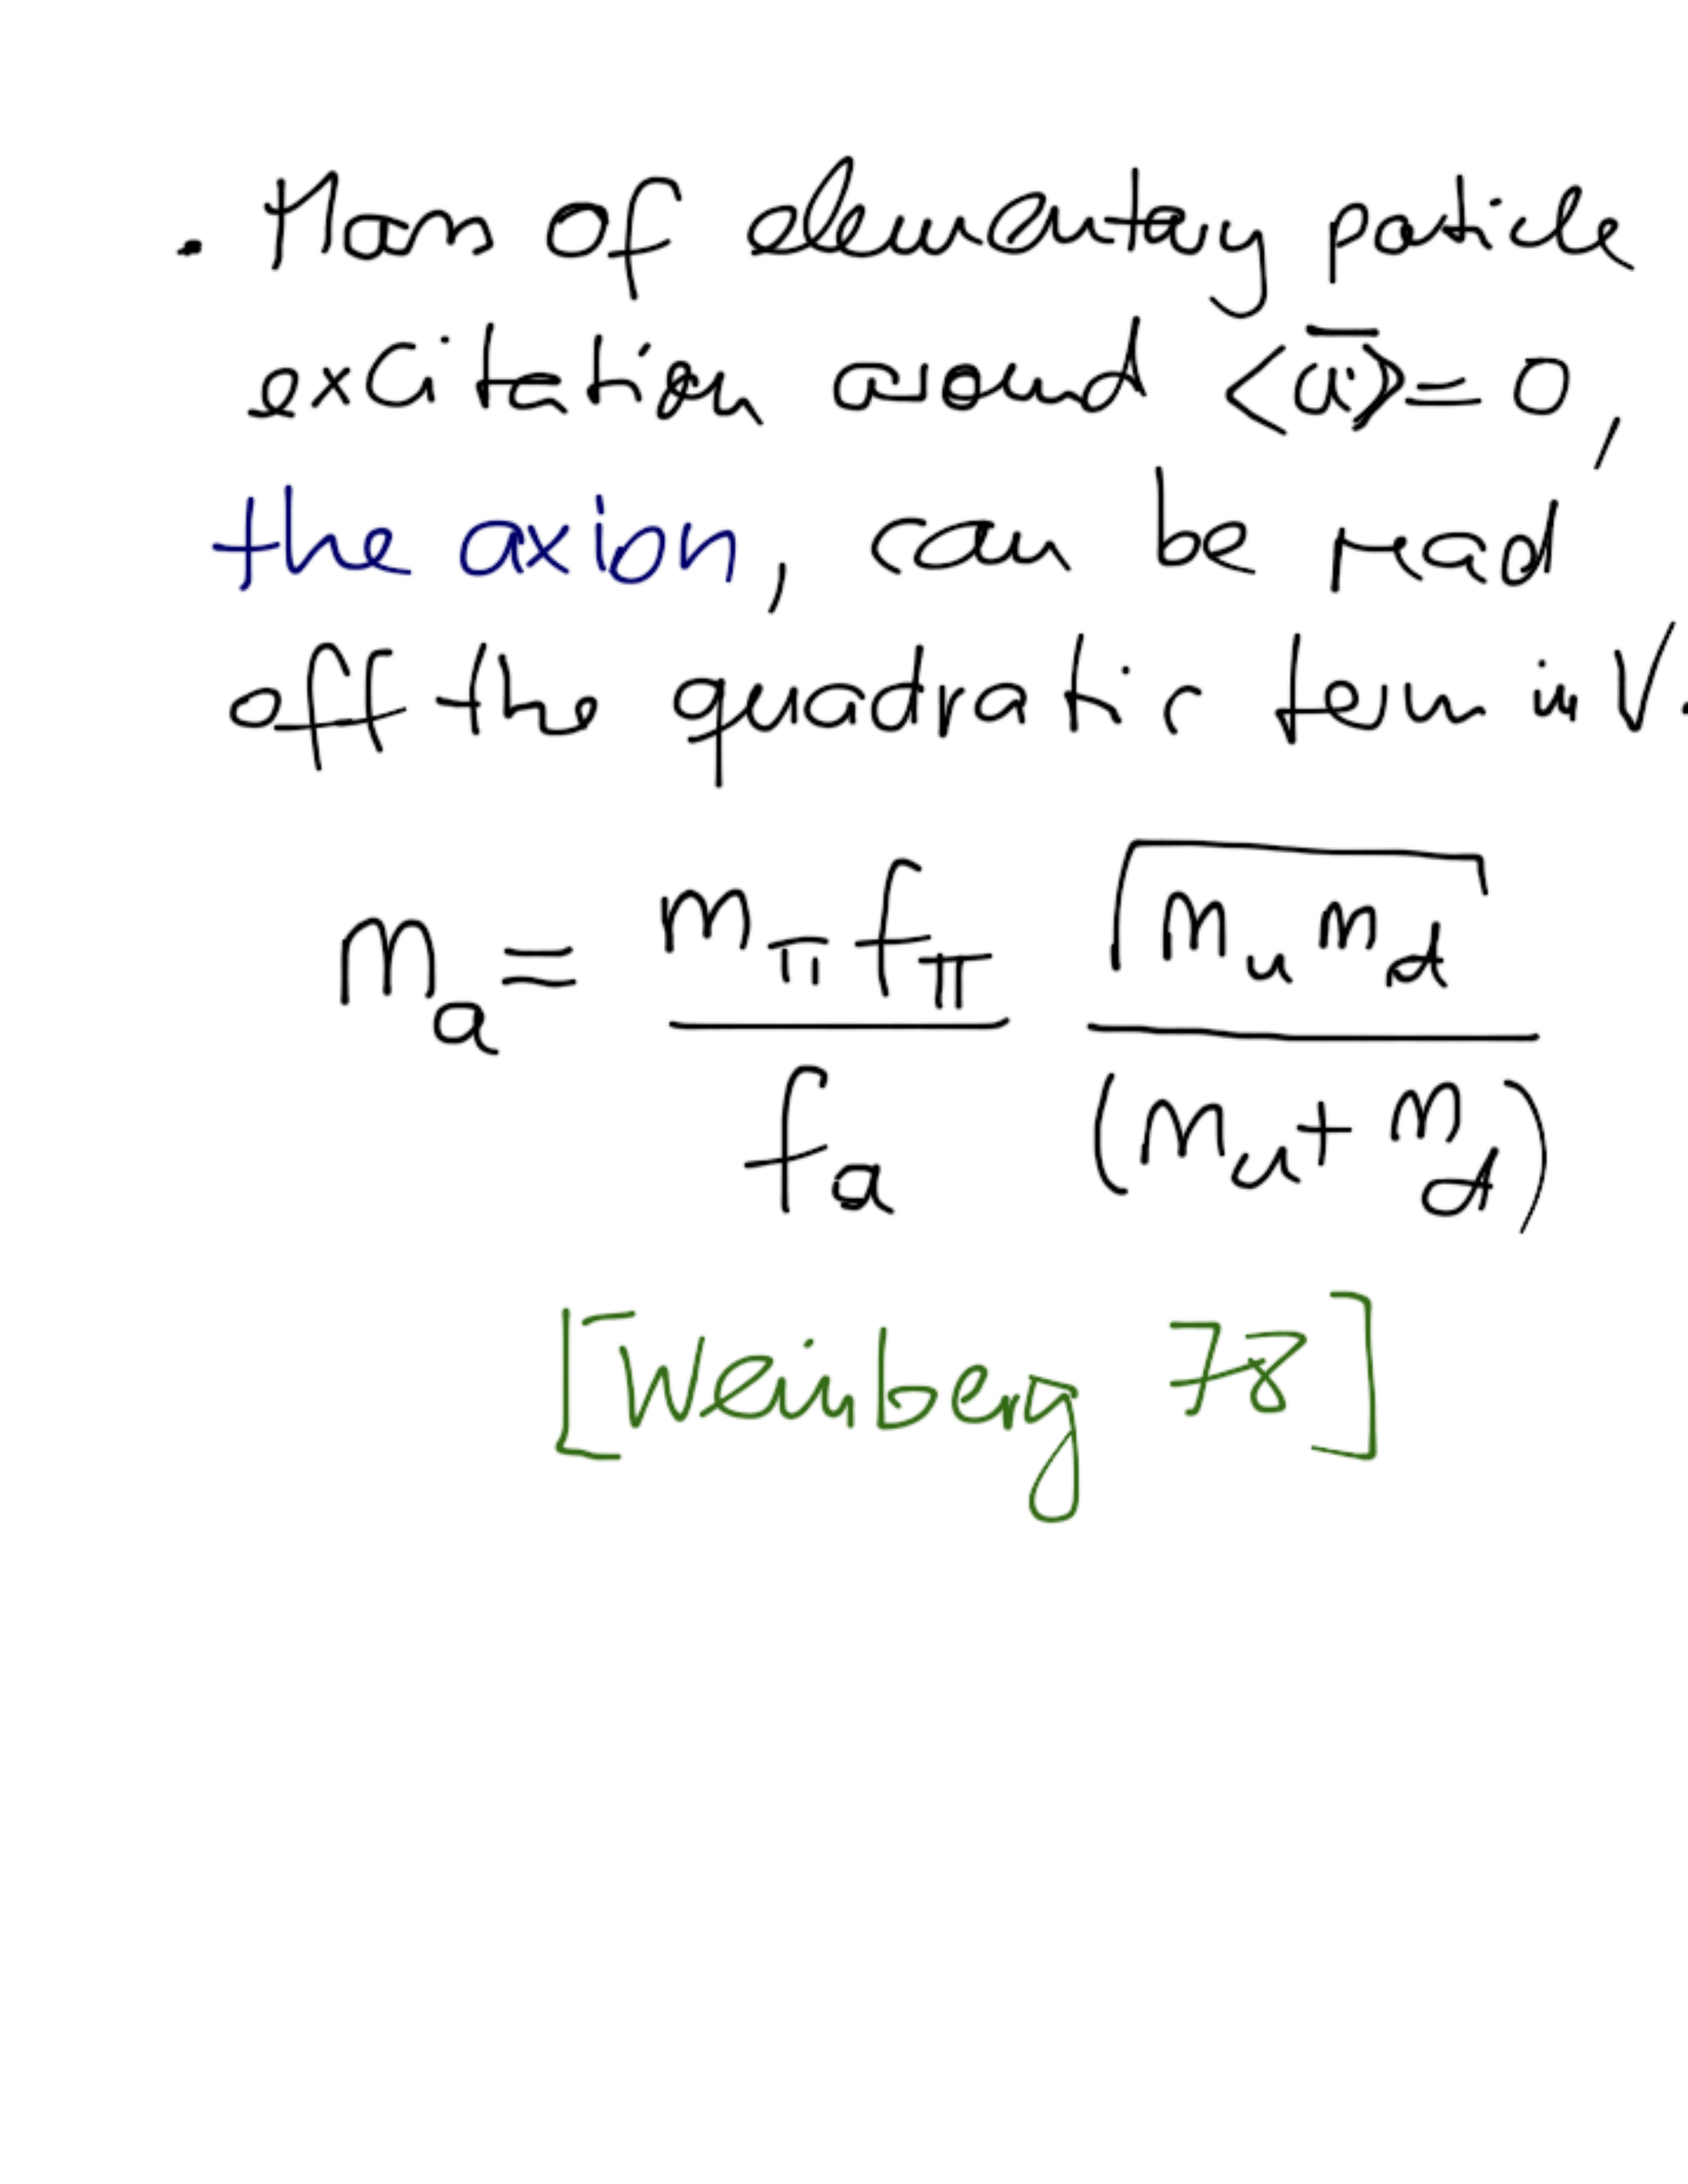 . Mass of elementary particle
excitation around <ā> = 0,
the axion, can be read
off the quadratic term in V.
m_a = \frac{m_π f_π}{f_a} \frac{\sqrt{m_u m_d}}{(m_u + m_d)}
[Weinberg 78]